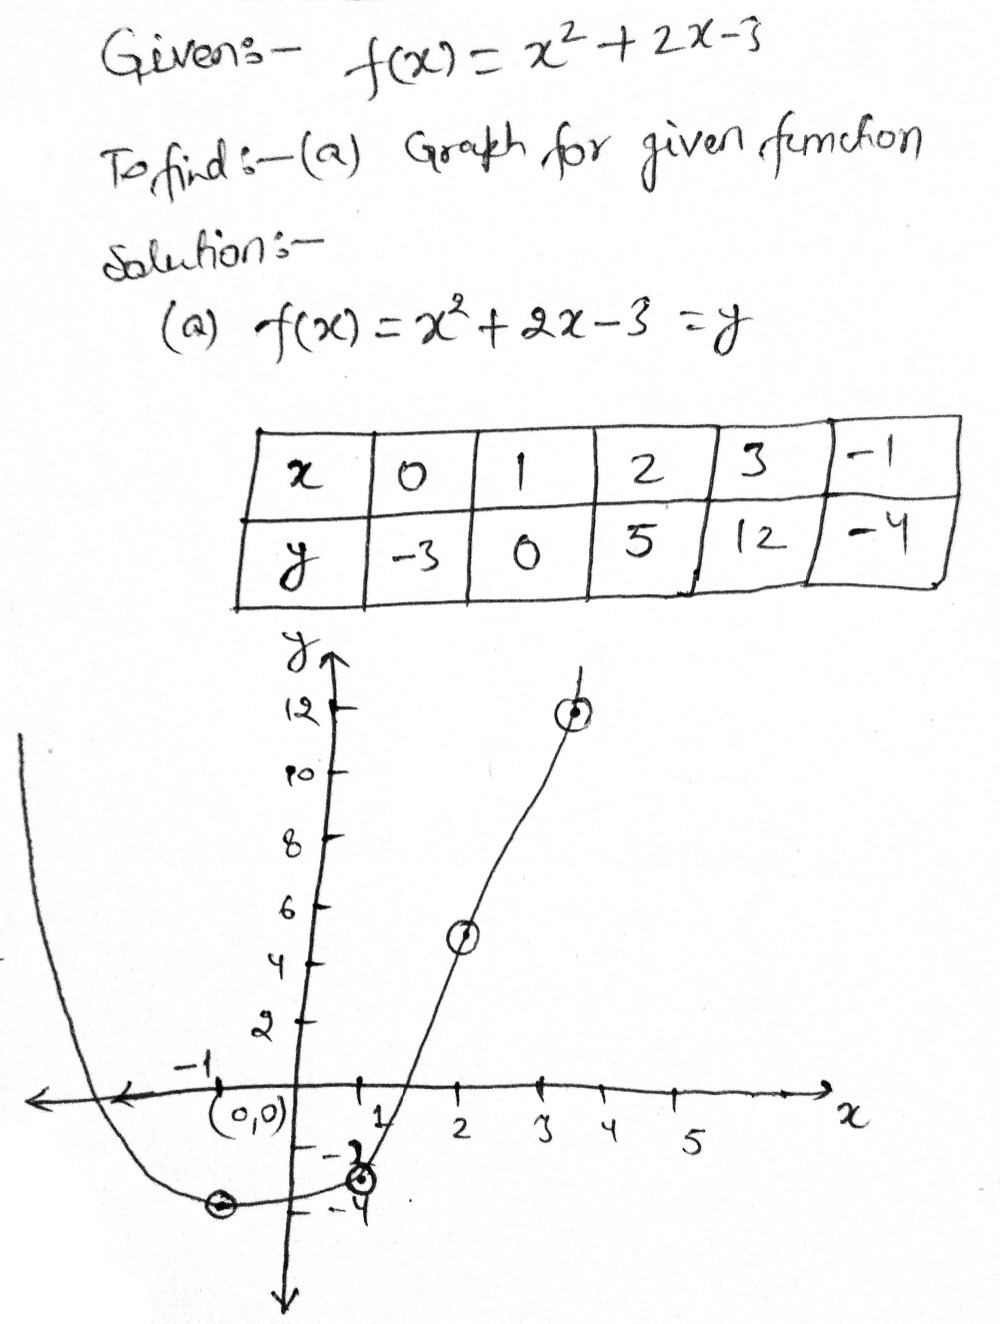 Given:- f(x) = x² + 2x-3
To find :- (a) Graph for given function
Solution:-
(a) f(x) = x² + 2x - 3 = y
x 0 1 2 3 -1
y -3 0 5 12 -4
y
12
10
8
6
4
2
-1
(0,0) 1 2 3 4 5 x
-2
-4